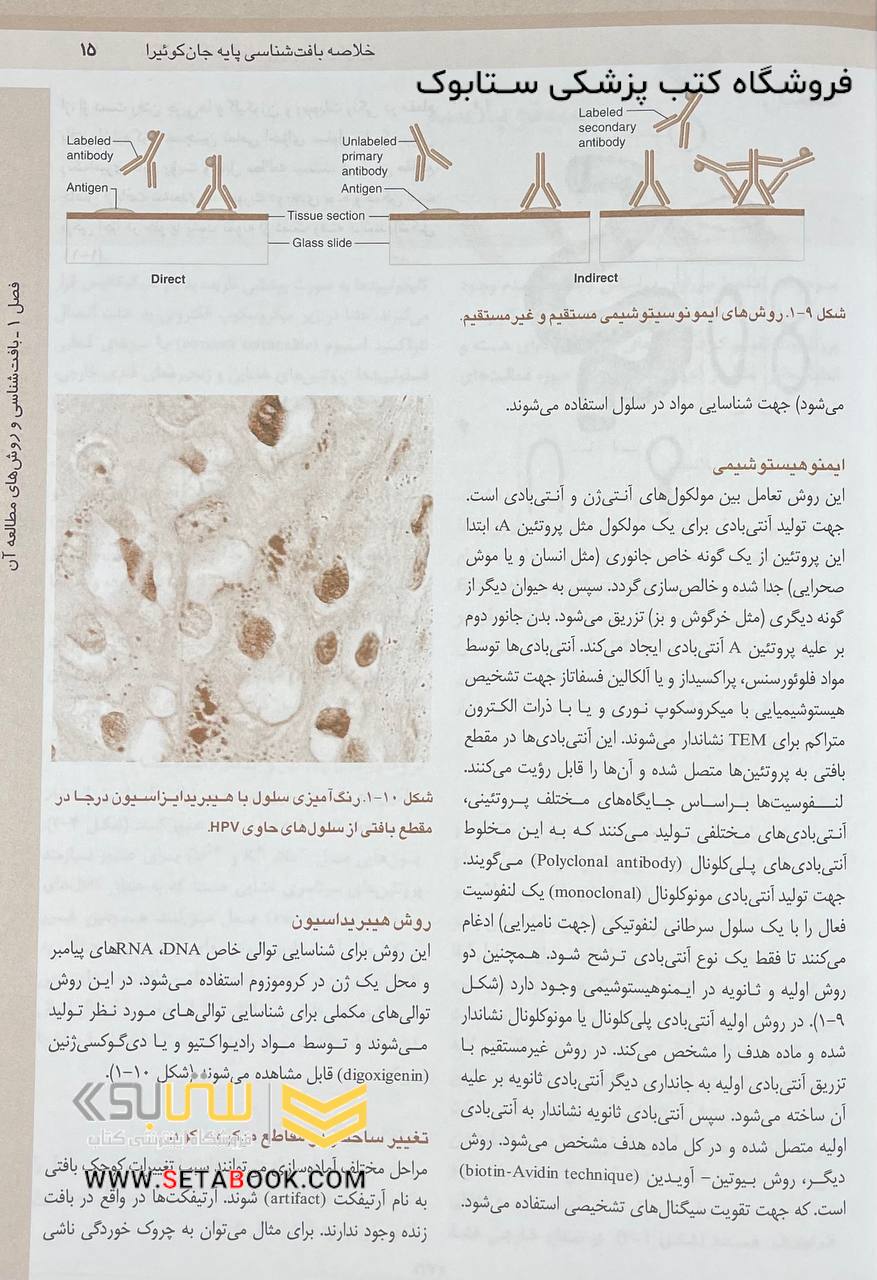 خلاصه بافت‌شناسی پایه جان‌کوئیرا ۱۵
فروشگاه کتب پزشکی ستابوک
Labeled
antibody
Antigen
Unlabeled
primary
antibody
Antigen
Labeled
secondary
antibody
Tissue section
Glass slide
Direct
Indirect
شکل ۹-۱. روش‌های ایمونوسیتوشیمی مستقیم و غیرمستقیم.
می‌شود) جهت شناسایی مواد در سلول استفاده می‌شوند.
ایمنوهیستوشیمی
این روش تعامل بین مولکول‌های آنتی‌ژن و آنتی‌بادی است.
جهت تولید آنتی‌بادی برای یک مولکول مثل پروتئین A، ابتدا
این پروتئین از یک گونه خاص جانوری (مثل انسان و یا موش
صحرایی) جدا شده و خالص‌سازی گردد. سپس به حیوان دیگر از
گونه دیگری (مثل خرگوش و بز) تزریق می‌شود. بدن جانور دوم
بر علیه پروتئین A آنتی‌بادی ایجاد می‌کند. آنتی‌بادی‌ها توسط
مواد فلوئورسنس، پراکسیداز و یا آلکالین فسفاتاز جهت تشخیص
هیستوشیمیایی با میکروسکوپ نوری و یا با ذرات الکترون
متراکم برای TEM نشاندار می‌شوند. این آنتی‌بادی‌ها در مقطع
بافتی به پروتئین‌ها متصل شده و آن‌ها را قابل رؤیت می‌کنند.
لنفوسیت‌ها براساس جایگاه‌های مختلف پروتئینی،
آنتی‌بادی‌های مختلفی تولید می‌کنند که به این مخلوط
آنتی‌بادی‌های پلی‌کلونال (Polyclonal antibody) می‌گویند.
جهت تولید آنتی‌بادی مونوکلونال (monoclonal) یک لنفوسیت
فعال را با یک سلول سرطانی لنفوتیکی (جهت نامیرایی) ادغام
می‌کنند تا فقط یک نوع آنتی‌بادی ترشح شود. همچنین دو
روش اولیه و ثانویه در ایمنوهیستوشیمی وجود دارد (شکل
۹-۱). در روش اولیه آنتی‌بادی پلی‌کلونال یا مونوکلونال نشاندار
شده و ماده هدف را مشخص می‌کند. در روش غیرمستقیم با
تزریق آنتی‌بادی اولیه به جانداری دیگر آنتی‌بادی ثانویه بر علیه
آن ساخته می‌شود. سپس آنتی‌بادی ثانویه نشاندار به آنتی‌بادی
اولیه متصل شده و در کل ماده هدف مشخص می‌شود. روش
دیگر، روش بیوتین- آویدین (biotin-Avidin technique)
است. که جهت تقویت سیگنال‌های تشخیصی استفاده می‌شود.
شکل ۱۰-۱. رنگ‌آمیزی سلول با هیبریدایزاسیون درجا در
مقطع بافتی از سلول‌های حاوی HPV.
روش هیبریداسیون
این روش برای شناسایی توالی خاص DNA، RNAهای پیامبر
و محل یک ژن در کروموزوم استفاده می‌شود. در این روش
توالی‌های مکملی برای شناسایی توالی‌های مورد نظر تولید
می‌شوند و توسط مواد رادیواکتیو و یا دی‌گوکسی‌ژنین
(digoxigenin) قابل مشاهده می‌شوند (شکل ۱۰-۱).
ستابوک
فروشگاه اینترنتی کتاب
تغییر مقاطع
مراحل مختلف آماده‌سازی می‌توانند سبب تغییرات کوچک بافتی
WWW.SETABOOK.COM
به نام آرتیفکت (artifact) شوند. آرتیفکت‌ها در واقع در بافت
زنده وجود ندارند. برای مثال می‌توان به چروک خوردگی ناشی
فصل ۱ ـ بافت‌شناسی و روش‌های مطالعه آن